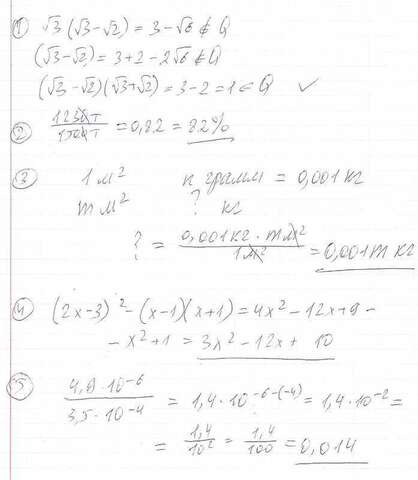 ① √3 (√3 - √2) = 3 - √6 ∉ Q
(√3 - √2) = 3 + 2 - 2√6 ∉ Q
(√3 - √2)(√3 + √2) = 3 - 2 = 1 ∈ Q ✓
② 1230т / 1500т = 0,82 = 82%
③ 1 м² n грамм = 0,001 кг
m м² ? кг
? = 0,001 кг · m м² / 1 м² = 0,001m кг
④ (2x-3)² - (x-1)(x+1) = 4x² - 12x + 9 -
- x² + 1 = 3x² - 12x + 10
⑤ 4,9 · 10⁻⁶ / 3,5 · 10⁻⁴ = 1,4 · 10⁻⁶⁻⁽⁻⁴⁾ = 1,4 · 10⁻² =
= 1,4 / 10² = 1,4 / 100 = 0,014